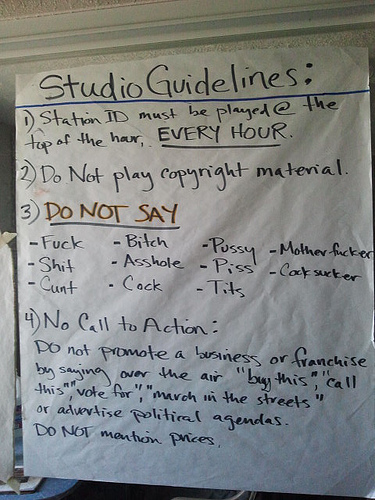 Studio Guidelines:
1) Station ID must be played @ the
top of the hour, EVERY HOUR.
2) Do Not play copyright material.
3) DO NOT SAY
- Fuck - Bitch - Pussy - Mother fucker
- Shit - Asshole - Piss - Cock sucker
- Cunt - Cock - Tits
4) No Call to Action:
DO not promote a business or franchise
by saying over the air "buy this", "call
this", "vote for", "march in the streets"
or advertise political agendas.
DO NOT mention prices.